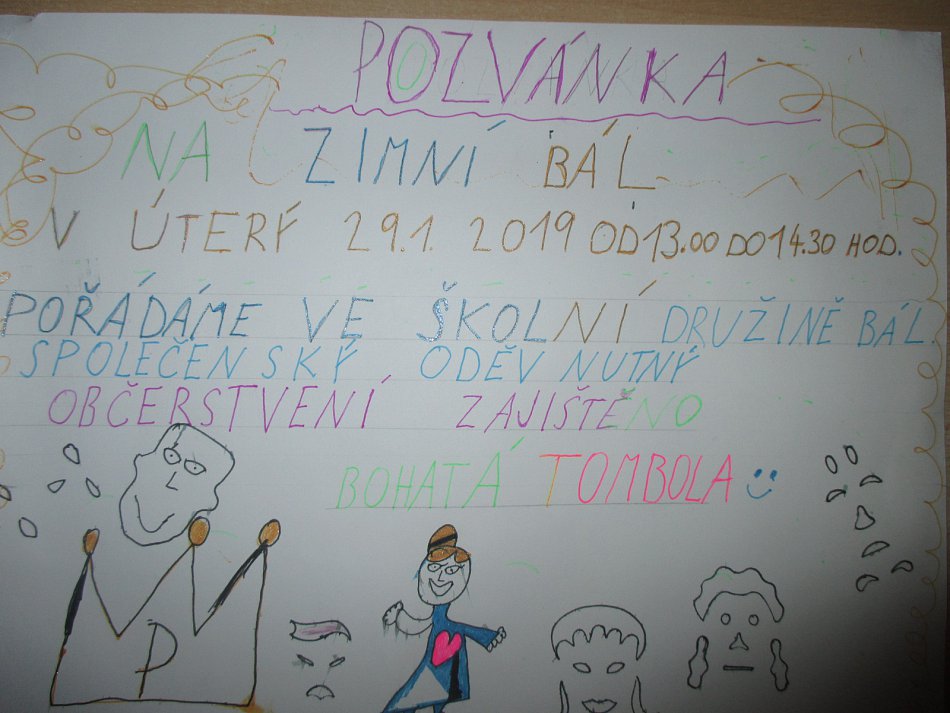 POZVÁNKA
NA ZIMNÍ BÁL
V ÚTERÝ 29.1. 2019 OD 13.00 DO 14.30 HOD.
POŘÁDÁME VE ŠKOLNÍ DRUŽINĚ BÁL.
SPOLEČENSKÝ ODĚV NUTNÝ
OBČERSTVENÍ ZAJIŠTĚNO
BOHATÁ TOMBOLA
P